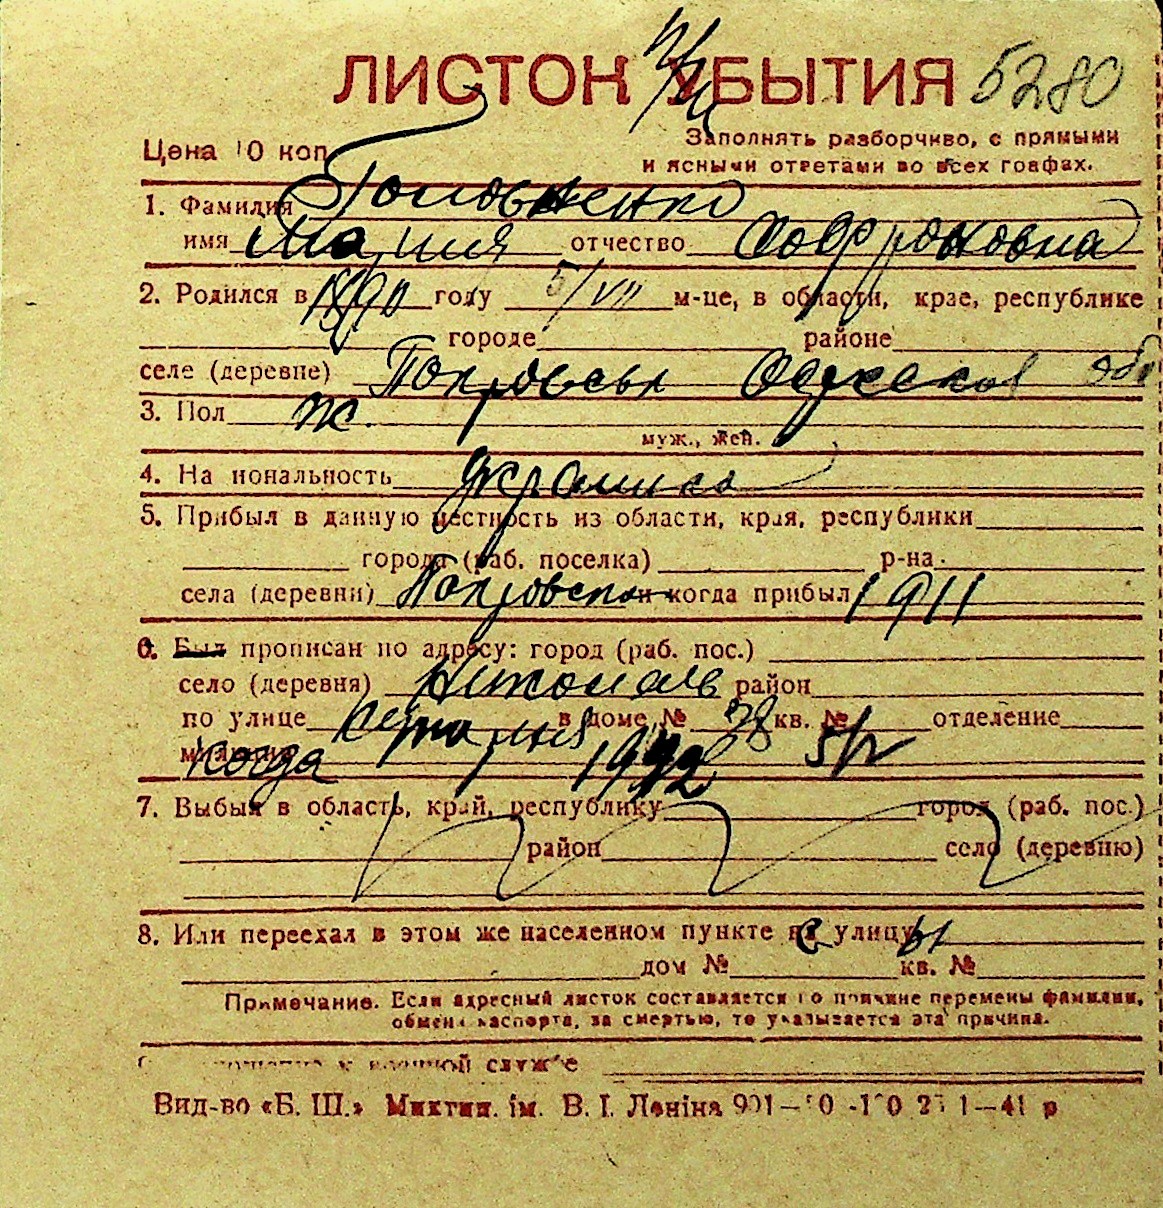 ЛИСТОК УБЫТИЯ 5280
Цена 10 коп
Заполнять разборчиво, с прямыми
и ясными ответами во всех графах.
1. Фамилия
имя Мария отчество Софроновна
2. Родился в 1890 году 5/VII м-це, в области, крае, республике
городе районе
селе (деревне) Покровск Одесской обл
3. Пол ж.
муж., жен.
4. Национальность украинка
5. Прибыл в данную местность из области, края, республики
города (раб. поселка) р-на
села (деревни) Покровском когда прибыл 1911
6. Был прописан по адресу: город (раб. пос.)
село (деревня) Николаев район
по улице в доме № 38 кв. № отделение
когда 1942
7. Выбыл в область, край, республику город (раб. пос.)
район село (деревню)
8. Или переехал в этом же населенном пункте на улицу
дом № кв. №
Примечание. Если адресный листок составляется по причине перемены фамилии,
обмена паспорта, за смертью, то указывается эта причина.
военной службе
Вид-во «Б. Ш.» Миктип. ім. В. І. Леніна